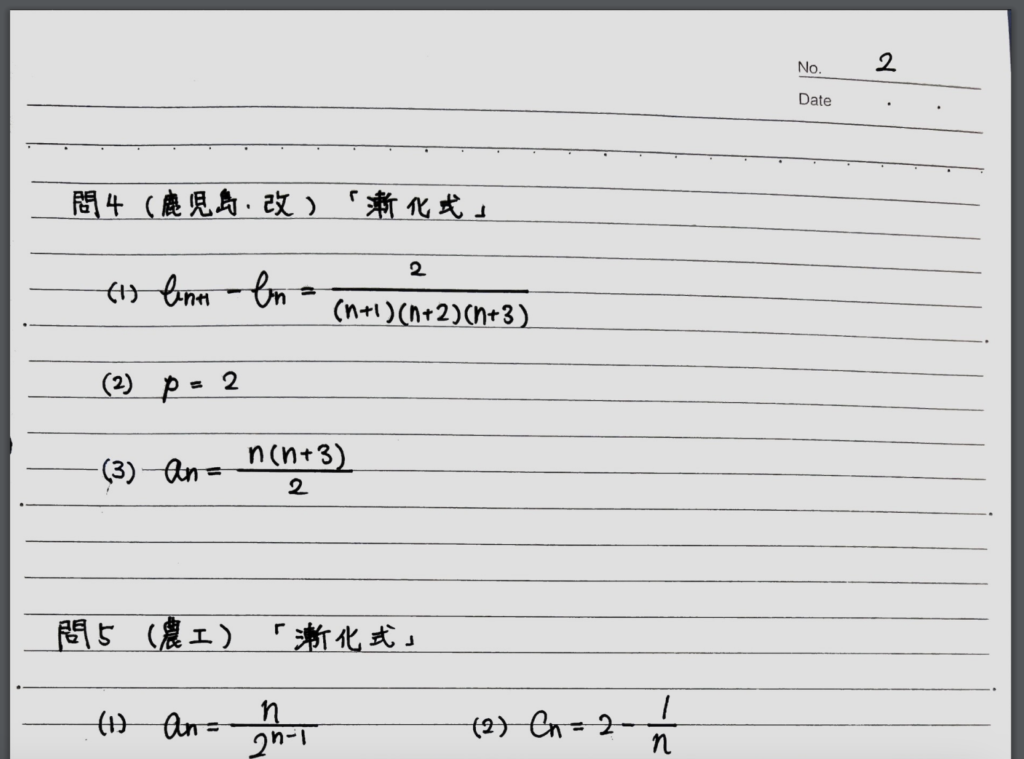 No. 2
Date . .
問4 (鹿児島・改) 「漸化式」
(1) b_{n+1} - b_n = \frac{2}{(n+1)(n+2)(n+3)}
(2) p = 2
(3) a_n = \frac{n(n+3)}{2}
問5 (農工) 「漸化式」
(1) a_n = \frac{n}{2^{n-1}} (2) C_n = 2 - \frac{1}{n}